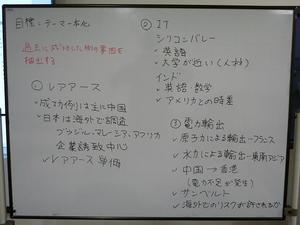 目標:テーマ一本化
過去に成功した例の要因を
抽出する
① レアアース
✓成功例は主に中国
✓日本は海外で調査
ブラジル・マレーシア・アフリカ
企業誘致中心
✓レアアース単価
② IT
シリコンバレー
✓英語
✓大学が近い(人材)
インド
✓英語・数学
✓アメリカとの時差
③ 電力輸出
✓原子力による輸出-フランス
✓水力による輸出-東南アジア
✓中国→香港
(電力不足が発生)
✓サンベルト
✓海外でのリスクが許されるか